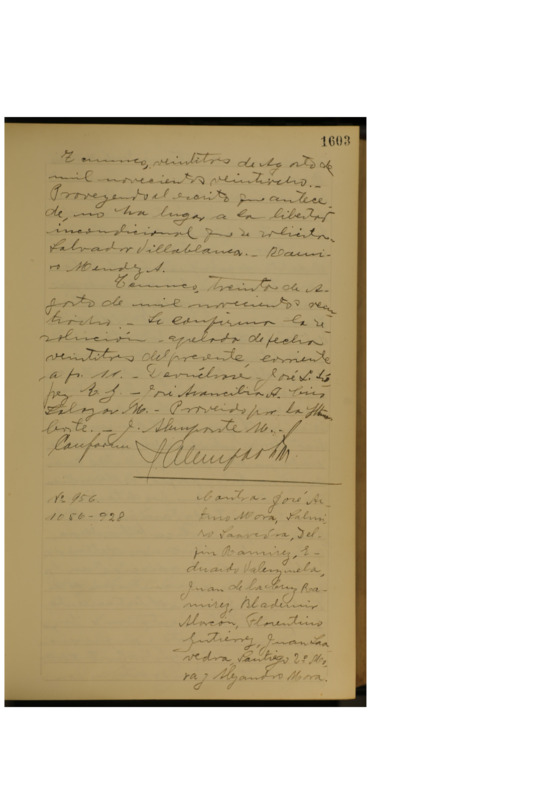 1603
Temuco, veintitres de Agosto de
mil novecientos veintiocho.-
Proveyendo el escrito que antece-
de, no ha lugar a la libertad
incondicional que se solicita.-
Salvador Villablanca.- Rami-
ro Mendez A.
Temuco, Treinta de A-
gosto de mil novecientos vein-
tiocho.- Se confirma la re-
solución apelada de fecha
veintitres del presente, corriente
a fs. Devuélvase. José L. Ló
pez José Arancibia A. Luis
Salazar M.- Proveido por la Iltma
Corte.- J. Alemparte M.-
Conforme
J Alemparte M.
No 956
1086-928
Contra- José Ar-
turo Mora, Salmi-
ro Saavedra, Del-
fin Ramirez, E-
duardo Valenzuela,
Juan de la Cruz Ra-
mirez, Bladimir
Alarcon, Florentino
Gutiérrez, Juan Saa
vedra, Santiago 2º Mo-
ra y Alejandro Mora.